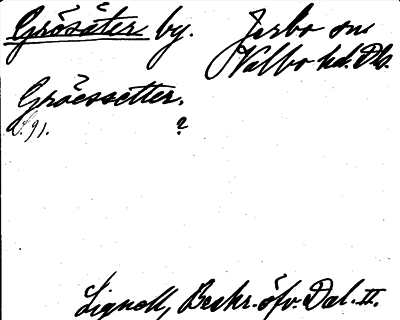 Grösäter by. Järbo sn
Valbo hd. Dls.
Gröessetter.
S. 91. ?
Lignell, Beskr. öfv. Dal. II.